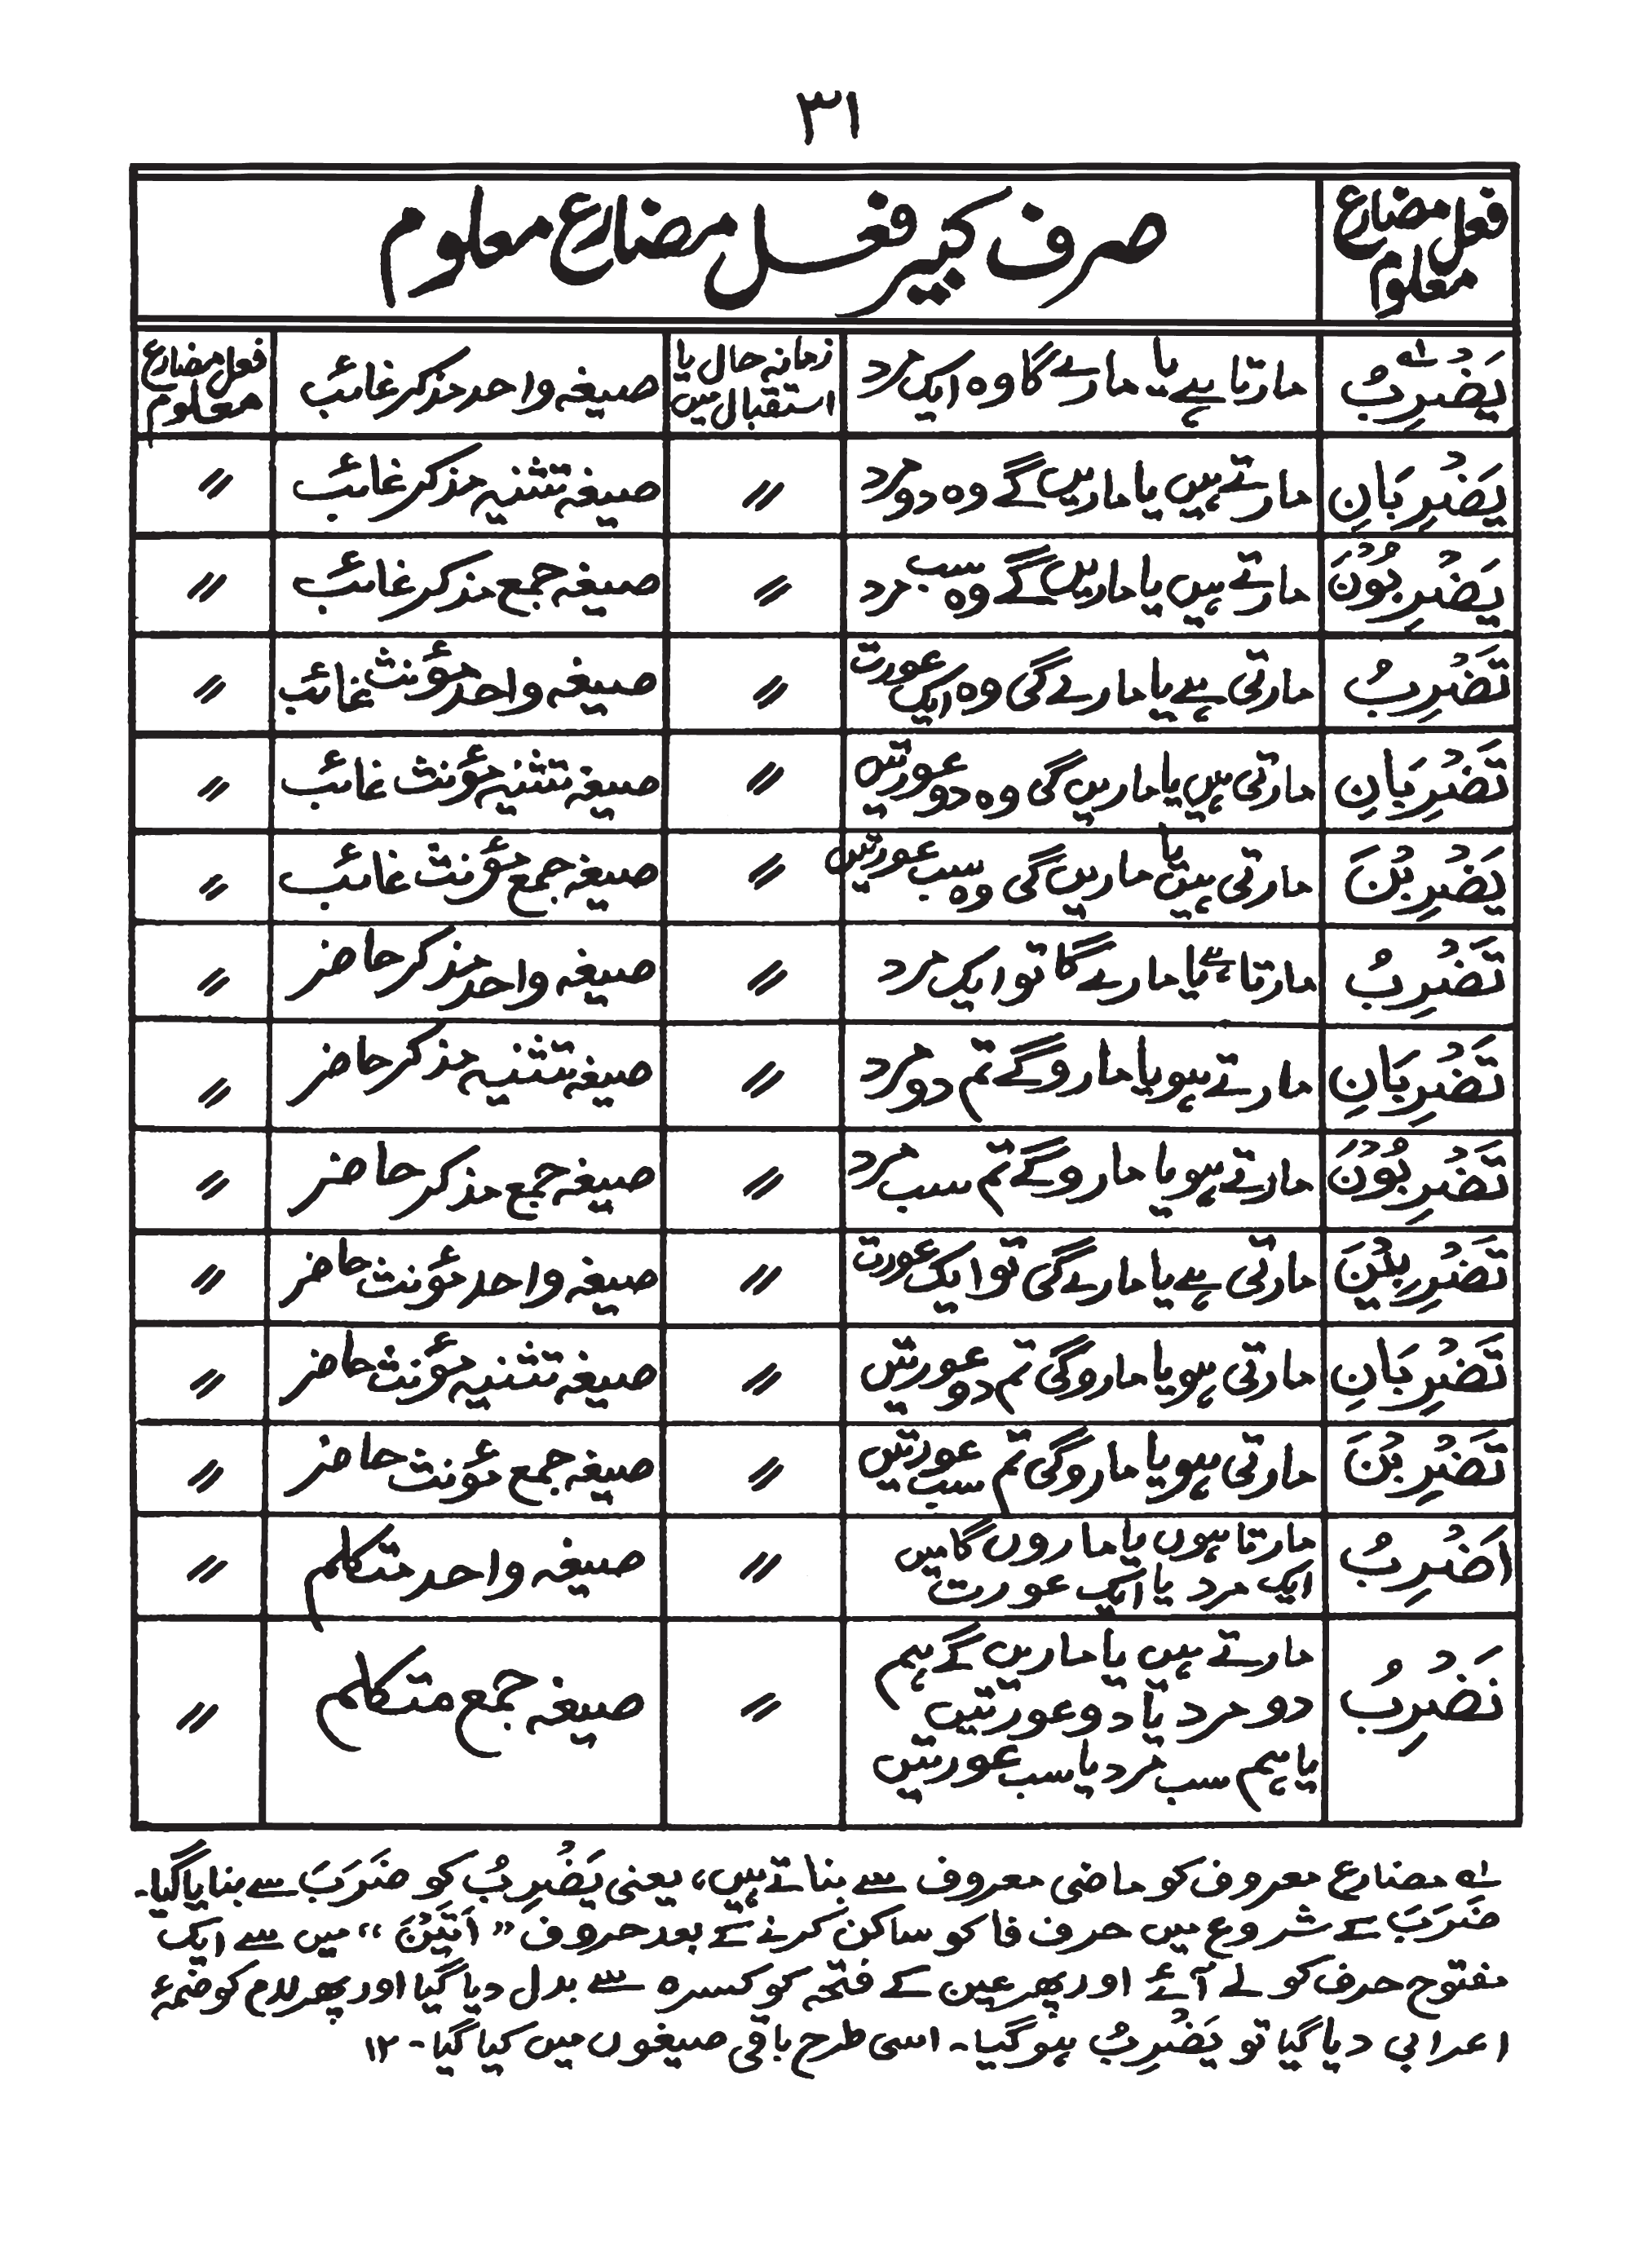 ۳۱
فعل مضارع معلوم	صرف کبیر فعل مضارع معلوم
یَضْرِبُ ؎۱	مارتا ہے یا مارے گا وہ ایک مرد	زمانہ حال یا استقبال میں	صیغہ واحد مذکر غائب	فعل مضارع معلوم
یَضْرِبَانِ	مارتے ہیں یا ماریں گے وہ دو مرد	〃	صیغہ تثنیہ مذکر غائب	〃
یَضْرِبُوْنَ	مارتے ہیں یا ماریں گے وہ سب مرد	〃	صیغہ جمع مذکر غائب	〃
تَضْرِبُ	مارتی ہے یا مارے گی وہ ایک عورت	〃	صیغہ واحد مؤنث غائب	〃
تَضْرِبَانِ	مارتی ہیں یا ماریں گی وہ دو عورتیں	〃	صیغہ تثنیہ مؤنث غائب	〃
یَضْرِبْنَ	مارتی ہیں یا ماریں گی وہ سب عورتیں	〃	صیغہ جمع مؤنث غائب	〃
تَضْرِبُ	مارتا ہے یا مارے گا تو ایک مرد	〃	صیغہ واحد مذکر حاضر	〃
تَضْرِبَانِ	مارتے ہو یا مارو گے تم دو مرد	〃	صیغہ تثنیہ مذکر حاضر	〃
تَضْرِبُوْنَ	مارتے ہو یا مارو گے تم سب مرد	〃	صیغہ جمع مذکر حاضر	〃
تَضْرِبِیْنَ	مارتی ہے یا مارے گی تو ایک عورت	〃	صیغہ واحد مؤنث حاضر	〃
تَضْرِبَانِ	مارتی ہو یا مارو گی تم دو عورتیں	〃	صیغہ تثنیہ مؤنث حاضر	〃
تَضْرِبْنَ	مارتی ہو یا مارو گی تم سب عورتیں	〃	صیغہ جمع مؤنث حاضر	〃
اَضْرِبُ	مارتا ہوں یا ماروں گا میں
ایک مرد یا ایک عورت	〃	صیغہ واحد متکلم	〃
نَضْرِبُ	مارتے ہیں یا ماریں گے ہم
دو مرد یا دو عورتیں
یا ہم سب مرد یا سب عورتیں	〃	صیغہ جمع متکلم	〃
؎۱ مضارع معروف کو ماضی معروف سے بناتے ہیں، یعنی یَضْرِبُ کو ضَرَبَ سے بنایا گیا۔
ضَرَبَ کے شروع میں حرف فا کو ساکن کرنے کے بعد حروف ”اَتَیْنَ“ میں سے ایک
مفتوح حرف کو لے آئے اور پھر عین کے فتحہ کو کسرہ سے بدل دیا گیا اور پھر لام کو ضمۂ
اعرابی دیا گیا تو یَضْرِبُ ہو گیا۔ اسی طرح باقی صیغوں میں کیا گیا۔ ۱۲